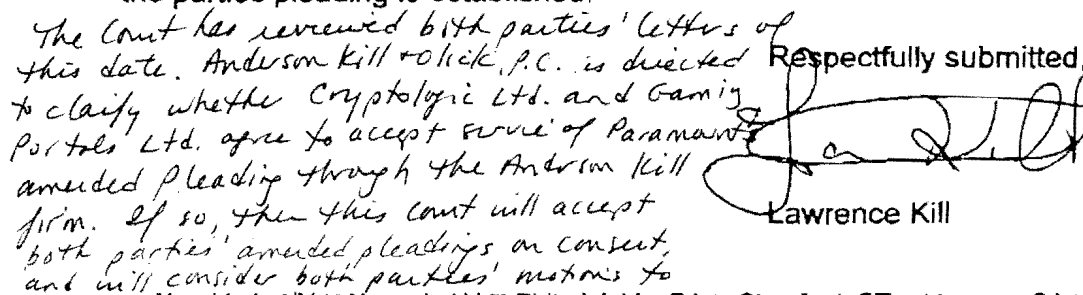 the parties pleading is established.
The Court has reviewed both parties' letters of
this date. Anderson Kill & Olick, P.C. is directed
to clarify whether Cryptologic Ltd. and Gaming
Portals Ltd. agree to accept service of Paramount's
amended pleading through the Anderson Kill
firm. If so, then this Court will accept
both parties' amended pleadings on consent,
and will consider both parties' motions to
Respectfully submitted,
Lawrence Kill